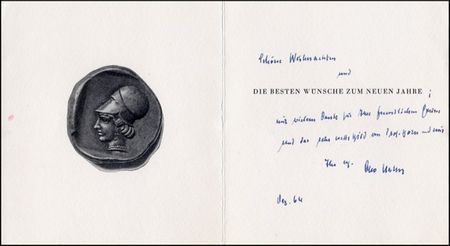 Schöne Weihnachten
und
DIE BESTEN WÜNSCHE ZUM NEUEN JAHRE;
mit vielem Dank für Ihre freundlichen
und das sehr von Prof. und
Ihr
Otto Hahn
Dez. 64